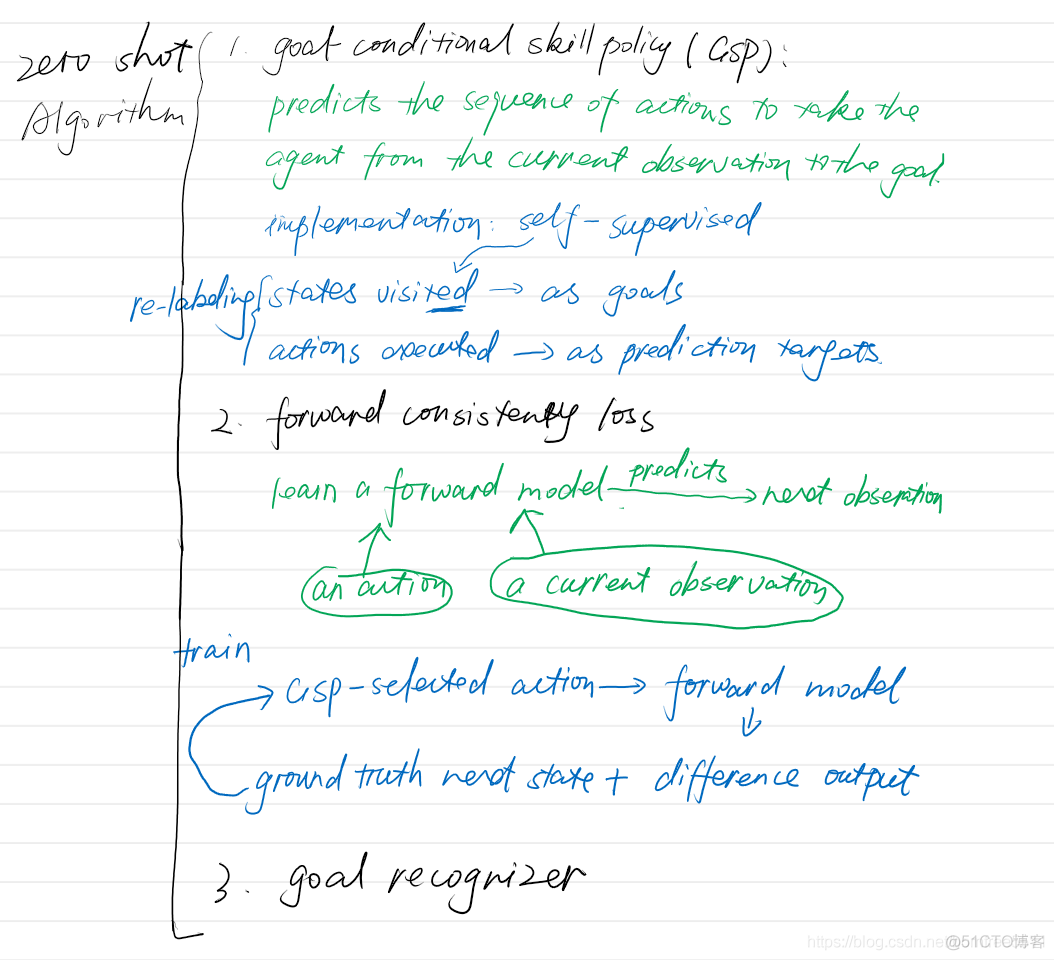 zero shot
Algorithm
1. goal conditional skill policy (GSP):
predicts the sequence of actions to take the
agent from the current observation to the goal.
implementation: self-supervised
re-labeling
states visited → as goals
actions executed → as prediction targets.
2. forward consistency loss
learn a forward model predicts → next observation
an action
a current observation
train
GSP-selected action → forward model
ground truth next state + difference output
3. goal recognizer
https://blog.csdn.net
@51CTO博客